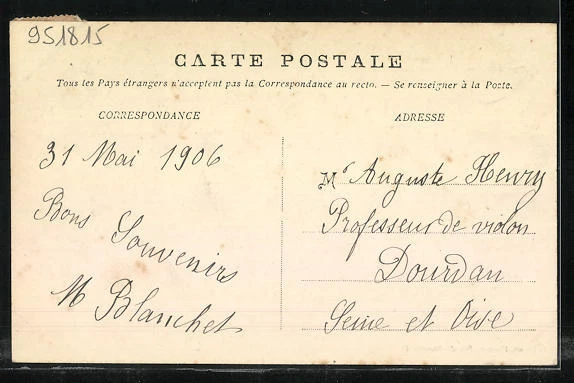 951815
CARTE POSTALE
Tous les Pays étrangers n'acceptent pas la Correspondance au recto. — Se renseigner à la Poste.
CORRESPONDANCE
ADRESSE
31 Mai 1906
Bons Souvenirs
M Blanchet
Mr Auguste Henry
Professeur de violon
Dourdan
Seine et Oise